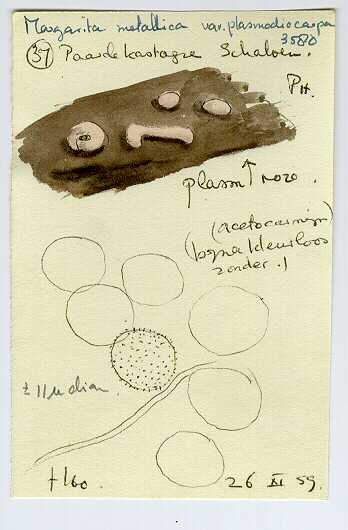 Margarita metallica var. plasmodiocarpa
3580
37 Paardekastagne Schalven.
PH.
plasm ↑ roze.
(acetocarmijn)
(bijna kleurloos
zonder.)
± 11 μ diam.
26 XI 59.